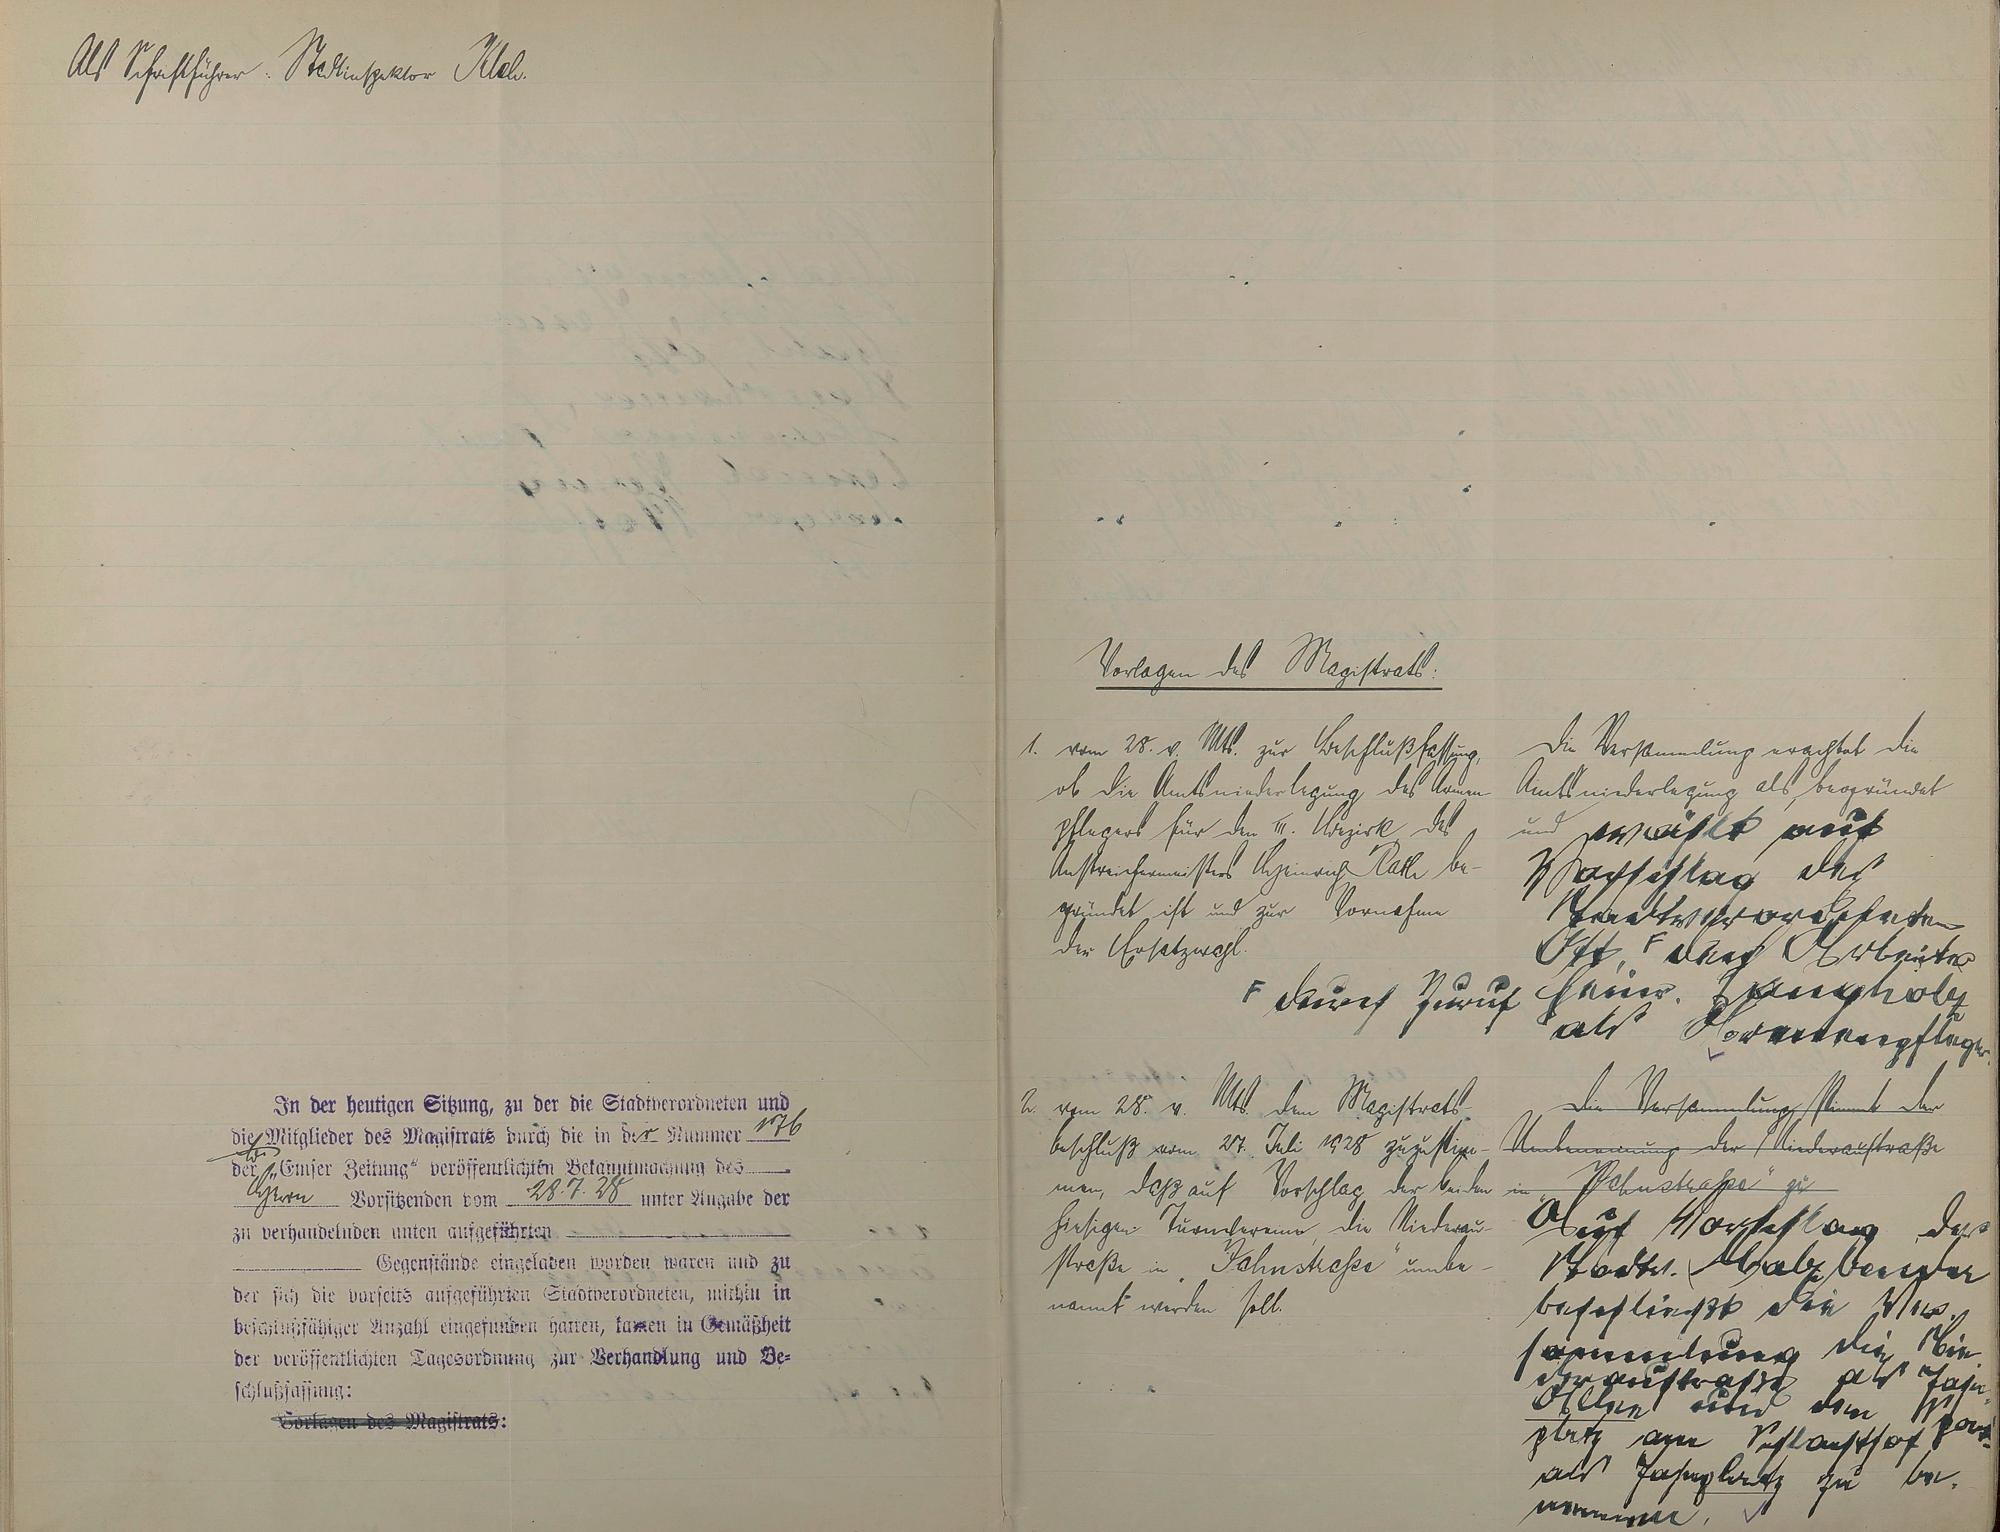 Als Schriftführer: Stadtinspektor Kleh.
In der heutigen Sitzung, zu der die Stadtverordneten und
die Mitglieder des Magistrats durch die in der Nummer 176
der „Emser Zeitung“ veröffentlichten Bekanntmachung des
Herrn Vorsitzenden vom 28.7.28 unter Angabe der
zu verhandelnden unten aufgeführten
Gegenstände eingeladen worden waren und zu
der sich die vorseits aufgeführten Stadtverordneten, mithin in
beschlußfähiger Anzahl eingefunden hatten, kamen in Gemäßheit
der veröffentlichten Tagesordnung zur Verhandlung und Be-
schlußfassung:
Vorlagen des Magistrats:
Vorlagen des Magistrats:
1. vom 28. v. Mts. zur Beschlußfassung,
ob die Amtsniederlegung des Armen-
pflegers für den III. Bezirk, des
Anstreichermeisters Heinrich be-
gründet ist und zur Vornahme
der Ersatzwahl.
Die Versammlung erachtet die
Amtsniederlegung als begründet
und wählt auf
Vorschlag des
Stadtverordneten
Ott, F den Arbeiter
F durch Zuruf
Heinr.
als Armenpfleger.
2. vom 28. v. Mts. dem Magistrats-
beschluß vom 27. Juli 1928 zuzustim-
men, daß auf Vorschlag der beiden
hiesigen Turnvereine, die Niederau-
straße in „Jahnstraße“ umbe-
nannt werden soll.
Die Versammlung stimmt der
Umbenennung der Niederaustraße
in „Jahnstraße“ zu
Auf Vorschlag des
Stadtv. Malzbender
beschließt die Ver-
sammlung die Nie-
deraustraße als Jahn-
Allee und den Sport-
platz am Schlachthof
als Jahnplatz zu be-
nennen.